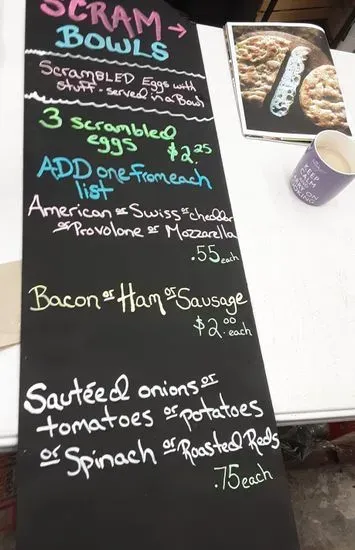 SCRAM →
BOWLS
SCRAMBLED Eggs with
stuff - served in a Bowl
3 scrambled
eggs $2.25
ADD one from each
list
American or Swiss or cheddar
or Provolone or Mozzarella
.55 each
Bacon or Ham or Sausage
$2.00 each
Sautéed onions or
tomatoes or potatoes
or Spinach or Roasted Reds
.75 each
KEEP
CALM
AND